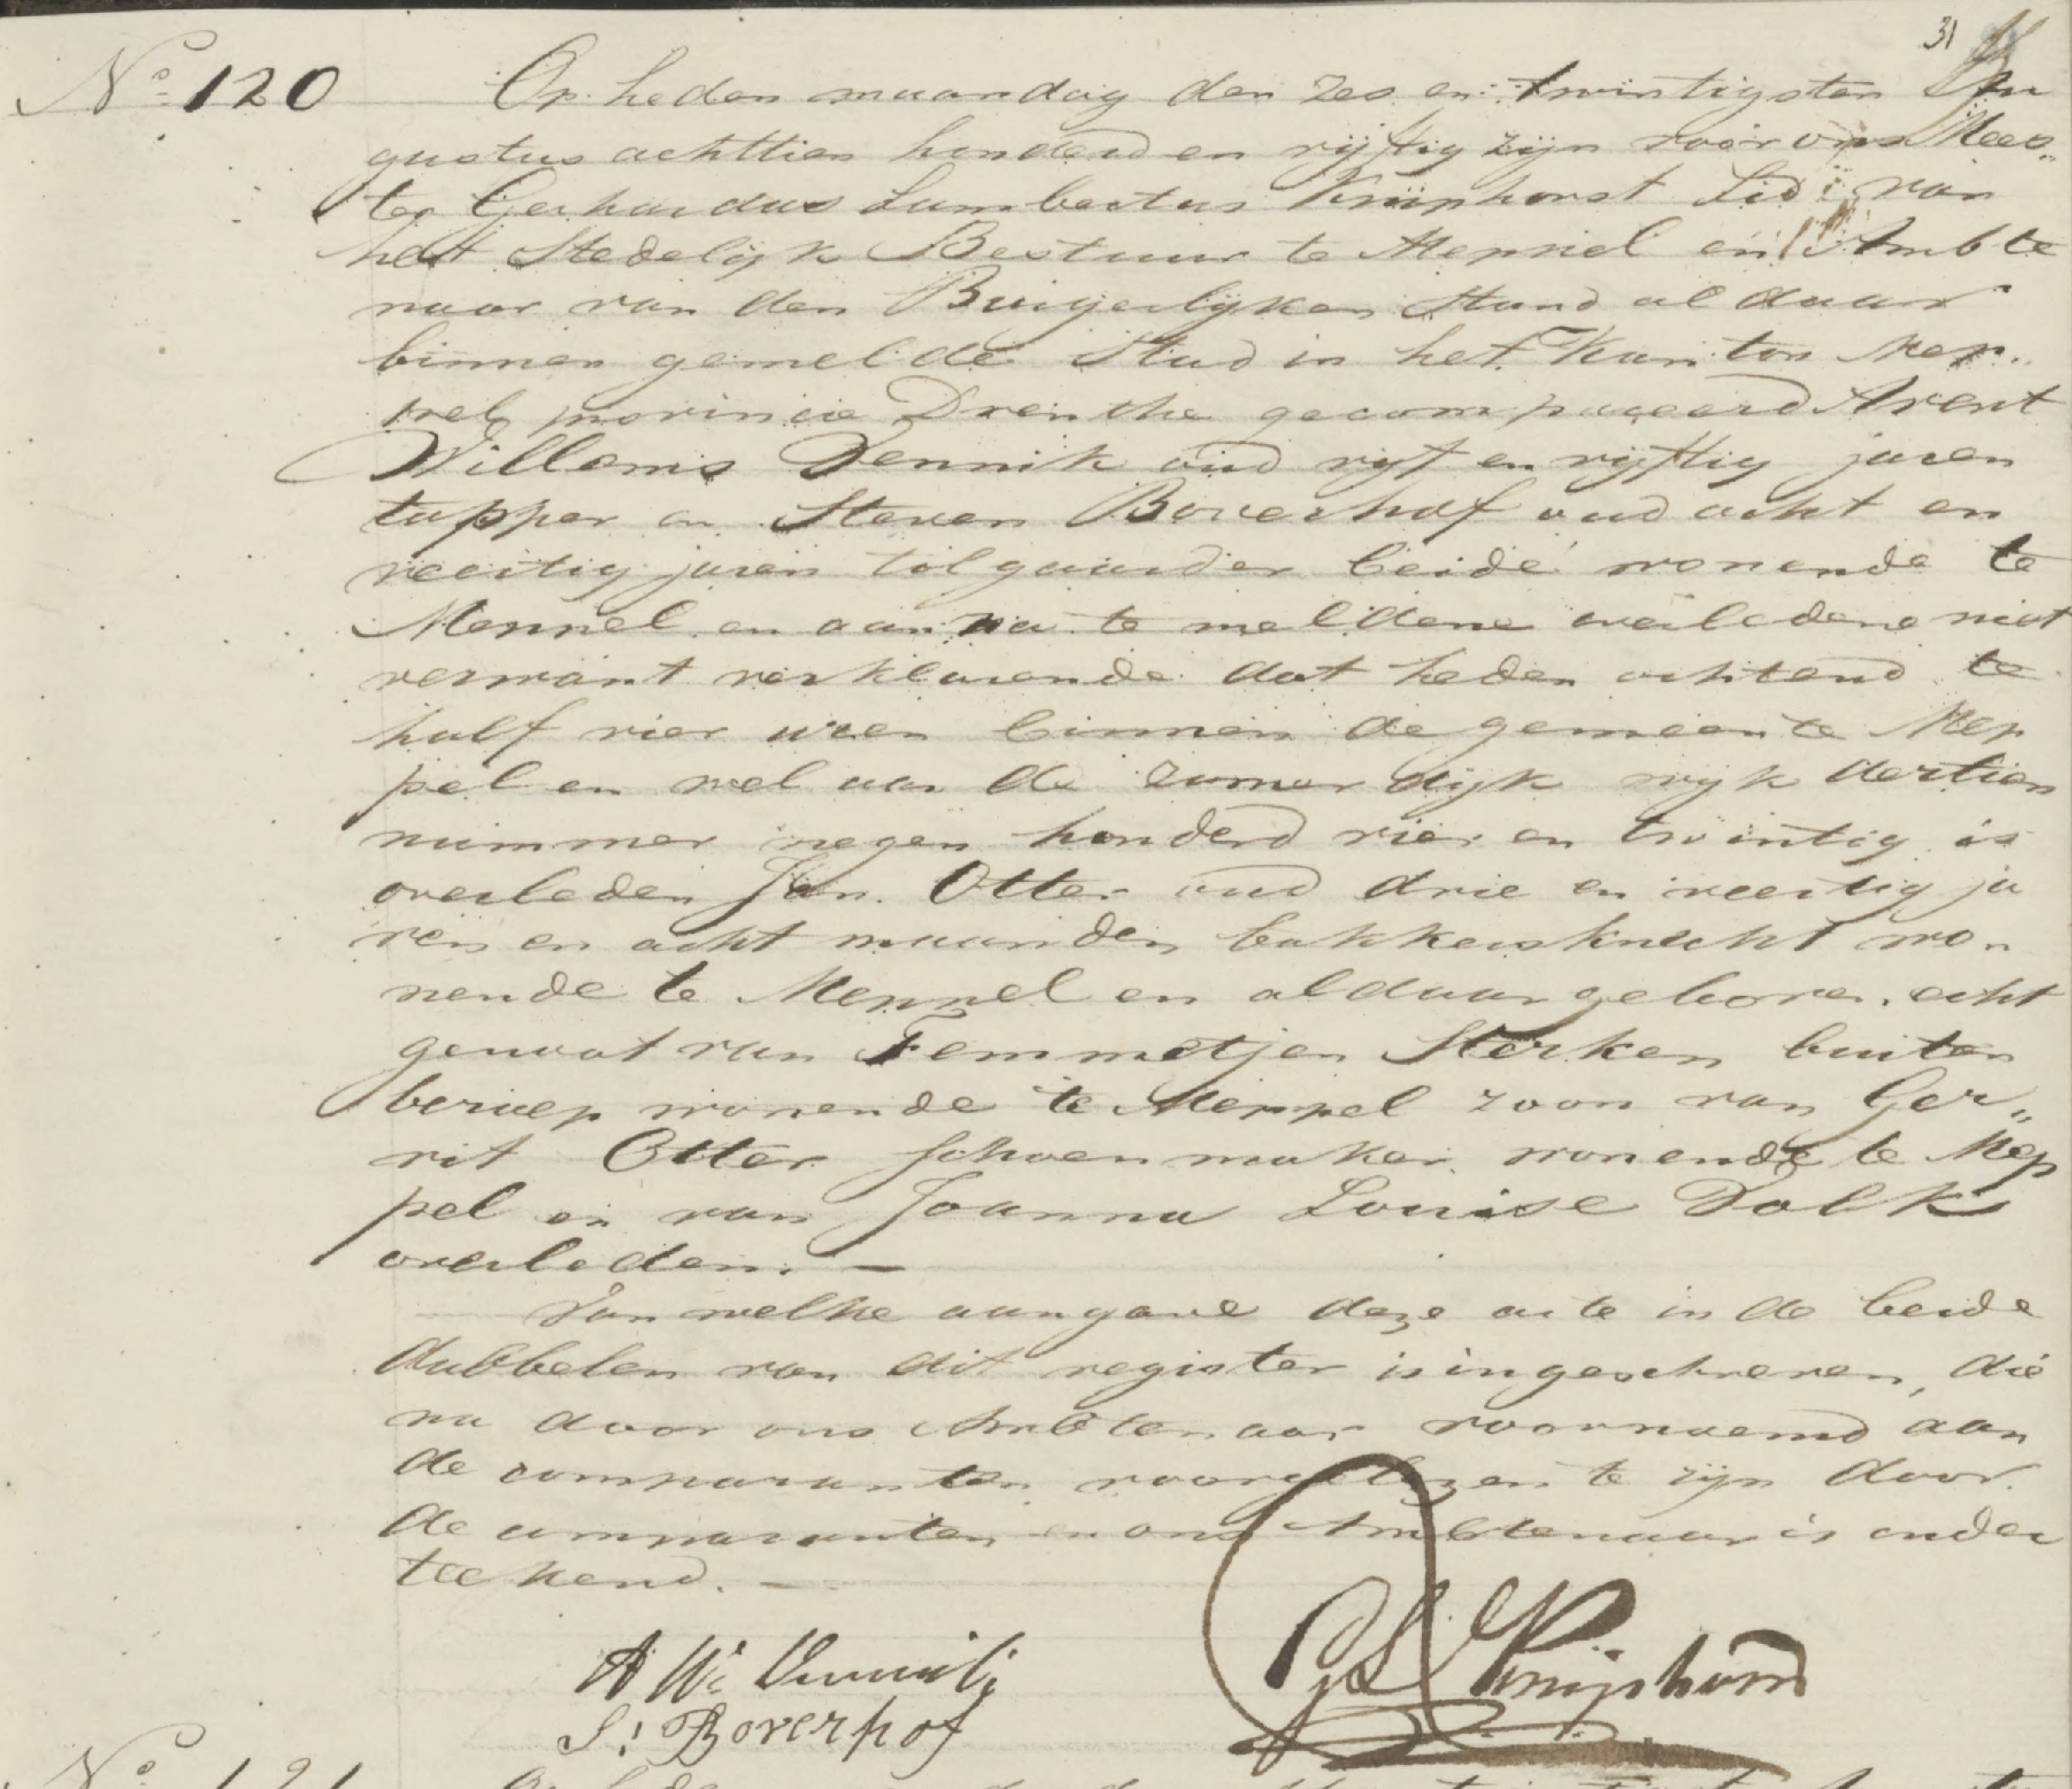 31
No 120 Op heden maandag den zes en twintigsten Au
gustus achttien honderd en vijftig zijn voor ons Mees„
ter Gerhardus Lambertus Kniphorst Lid van
het Stedelijk Bestuur te Meppel en Ambte
naar van den Burgerlijken Stand al daar
binnen gemelde Stad in het Kanton Mep„
pel, provincie Drenthe gecompareerd Arent
Willems Dennik oud vijf en vijftig jaren
tapper en Steven Boverhof oud acht en
veertig jaren tolgaarder beide wonende te
Meppel en aan na te meldene overledene niet
vermant verklarende dat heden ochtend te
half vier uren binnen de gemeente Mep
pel en wel aan de zomerdijk wijk dertien
nummer negen honderd vier en twintig is
overleden Jan Otter oud drie en veertig ja
ren en acht maanden bakkersknecht wo
nende te Meppel en aldaar geboren, echt
genoot van Femmetjen Sterken buiten
beroep wonende te Meppel zoon van Ger„
rit Otter schoenmaker wonende te Mep
pel en van Joanna Louise Dolk
overleden. —
Van welke aangave deze acte in de beide
dubbelen van dit register is ingeschreven, die
na door ons Ambtenaar voornoemd aan
de comparanten voorgelezen te zijn door
de comparanten en ons Ambtenaar is onder
teekend. —
A W Dennik
GL Kniphorst
S! Boverhof
No 121